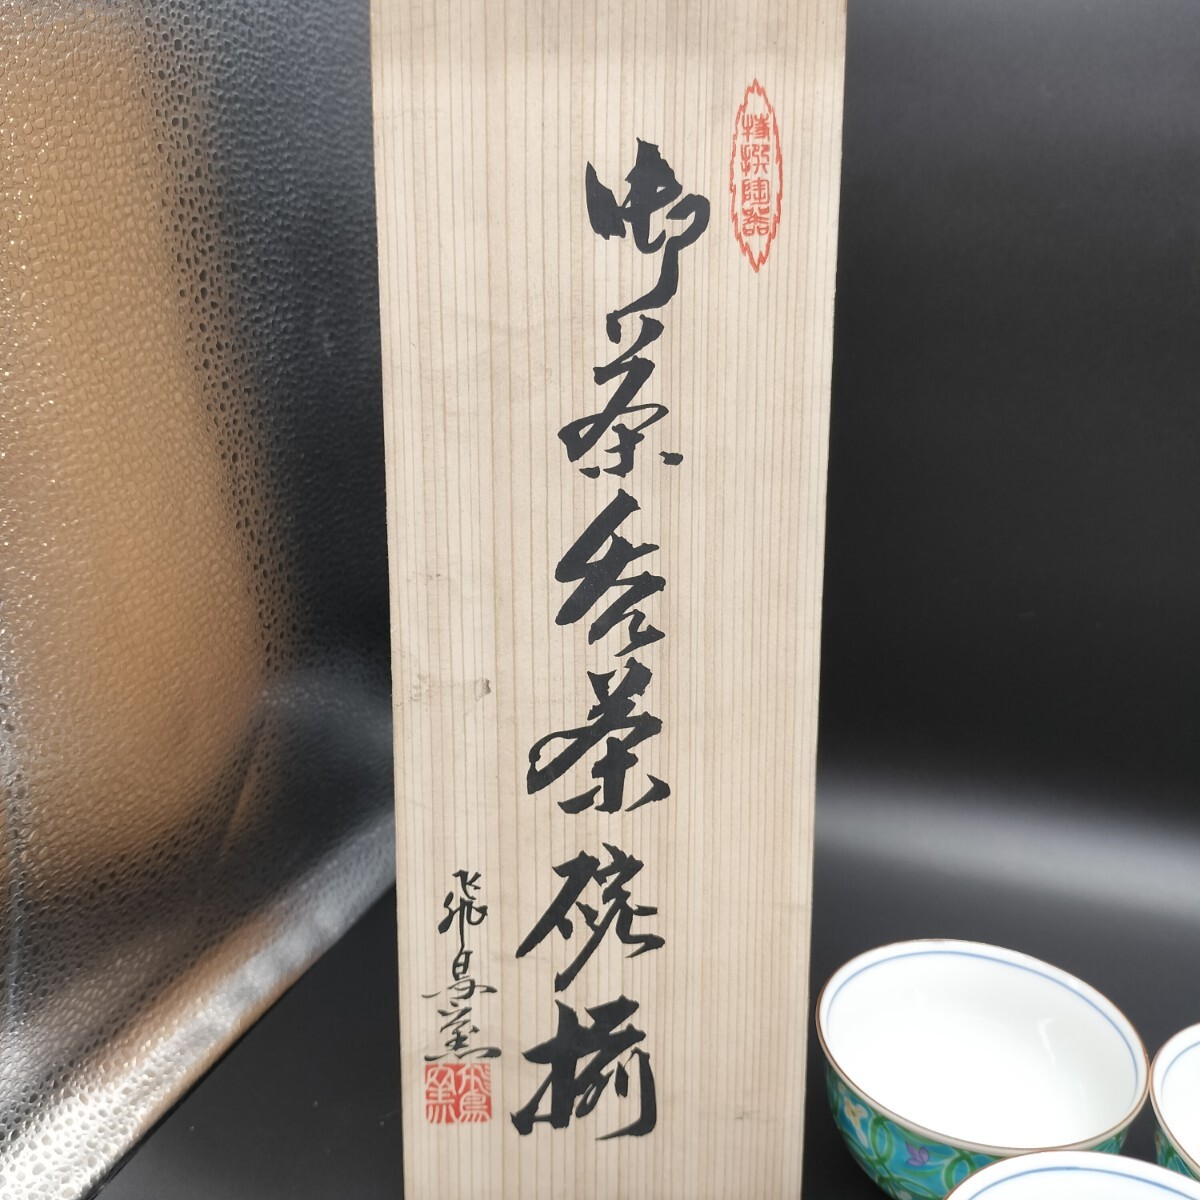 特撰陶器
御茶呑茶碗揃
飛鳥窯
飛鳥窯